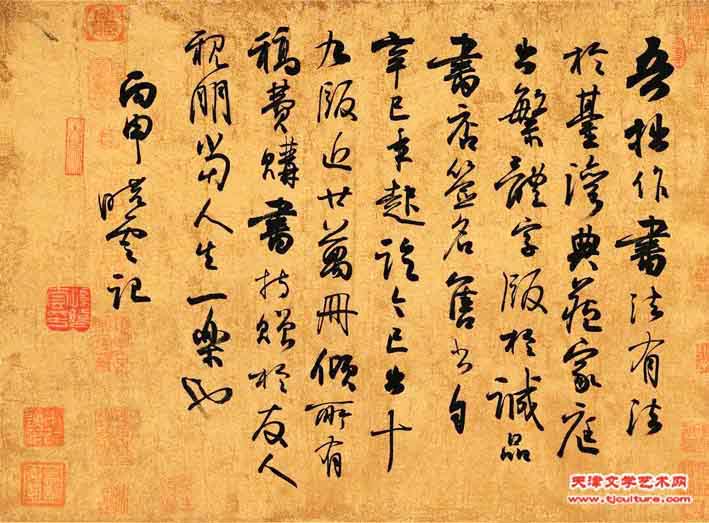 吾拙作书法有法
於臺灣典藏家庭
出繁體字版於誠品
書店签名售出自
辛巳年起訖今已出十
九版近廿萬冊傾所有
稿費購書持贈於友人
視朋当人生一樂也
丙申晓云记
天津文学艺术网
www.tjculture.com